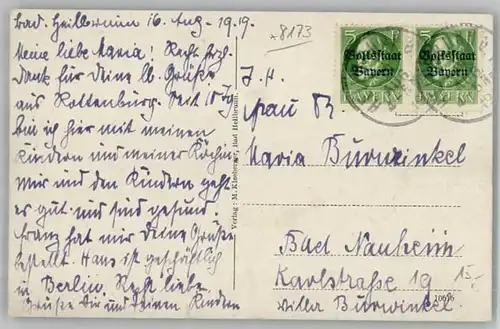 Bad Heilbrunn 16. Aug. 1919.
Meine liebe Maria! Recht hzl.
Dank für Deine lb. Grüße
aus Rottenburg. Seit 15
bin ich hier mit meinen
Kindern und meiner Köchin.
Mir und den Kindern geht
es gut und sind gesund.
Franz hat mir Deine Grüße
bestellt. Hans ist geschäftlich
in Berlin. Recht liebe
Grüße Dir und Deinen Kindern
8173
Verlag: M. Bad Heilbrunn.
5 Pf
Volksstaat
Bayern
BAYERN
5 Pf
Volksstaat
Bayern
BAYERN
I. H.
Frau Dr.
Maria Burwinkel
Bad Nauheim
Karlstraße 19
Villa Burwinkel
15.-
10696